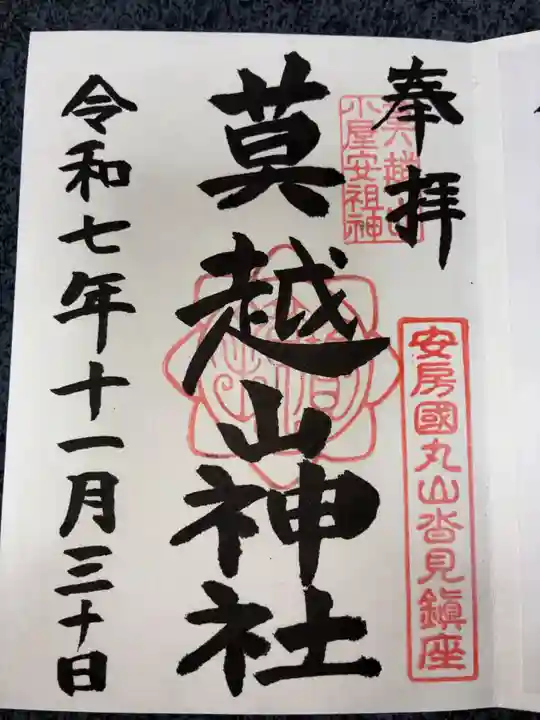 奉拝
莫越山
小屋安祖神
安房國丸山沓見鎮座
莫越山神社
令和七年十一月三十日